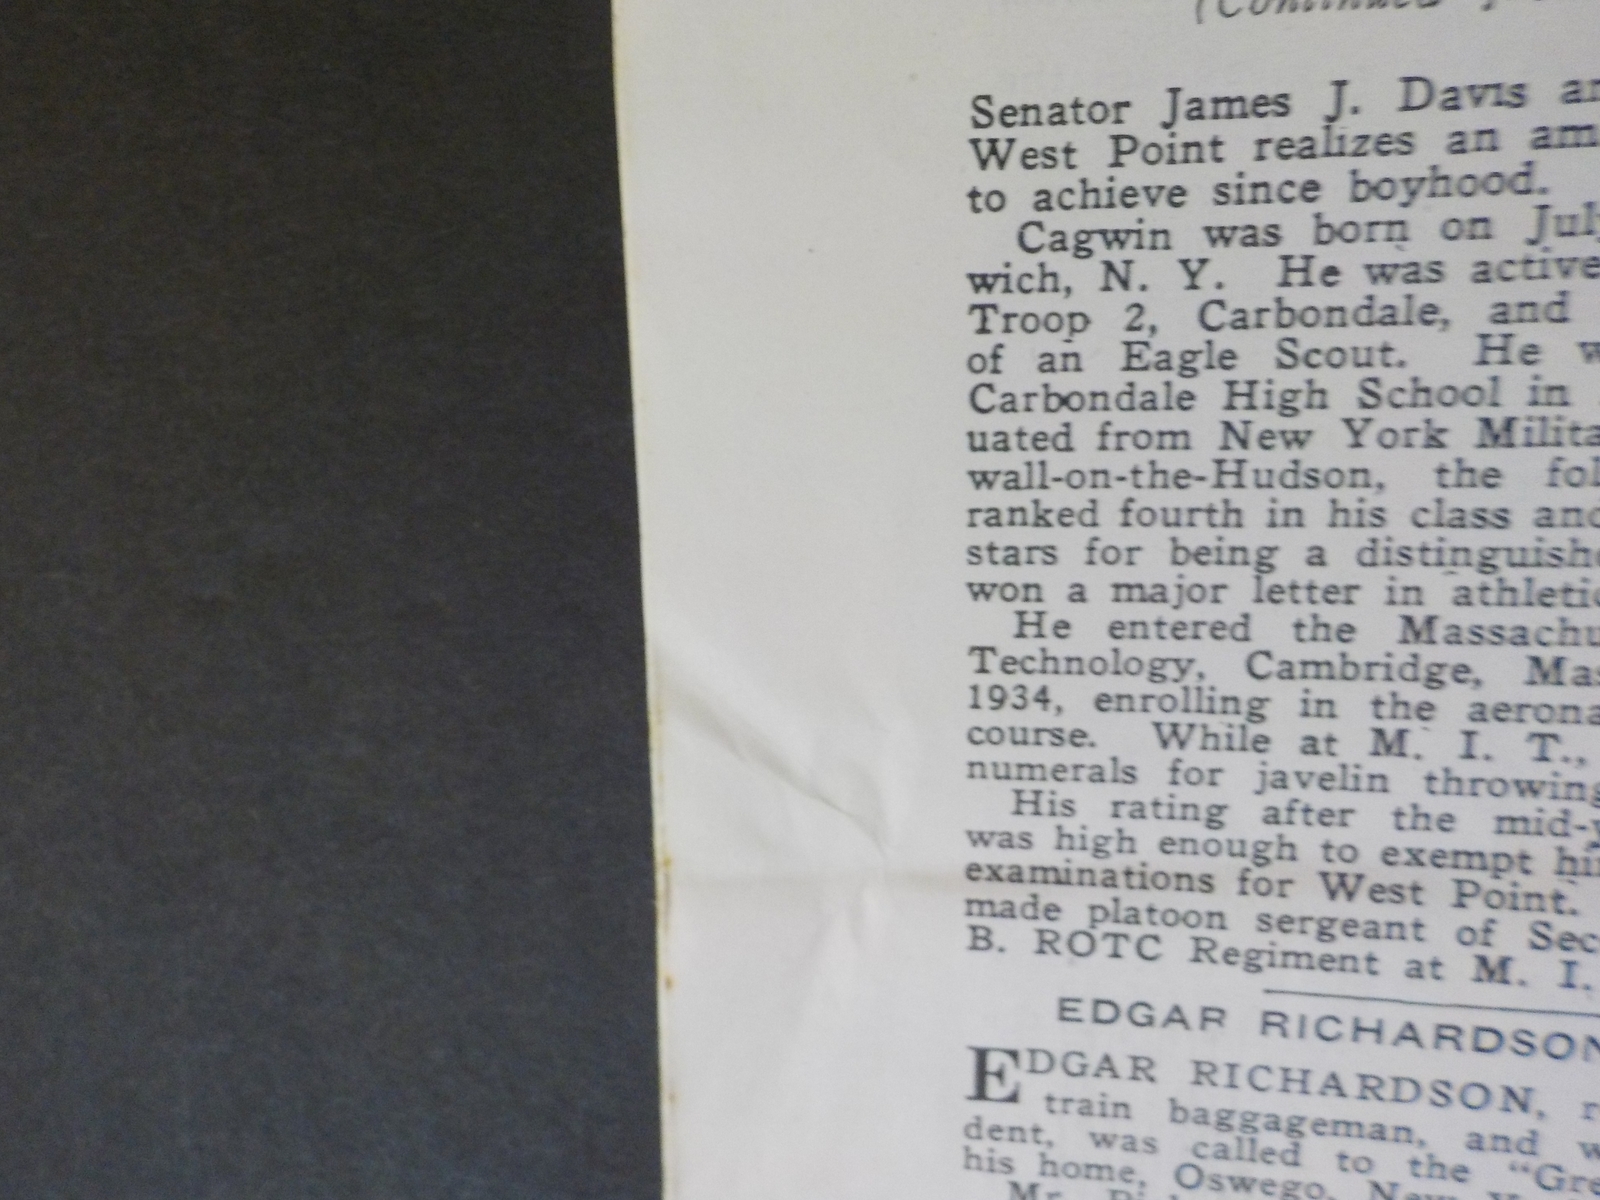 (Continued
Senator James J. Davis an
West Point realizes an am
to achieve since boyhood.
Cagwin was born on July
wich, N. Y. He was active
Troop 2, Carbondale, and
of an Eagle Scout. He w
Carbondale High School in
uated from New York Milita
wall-on-the-Hudson, the fol
ranked fourth in his class and
stars for being a distinguishe
won a major letter in athletic
He entered the Massachu
Technology, Cambridge, Mas
1934, enrolling in the aerona
course. While at M. I. T.,
numerals for javelin throwing
His rating after the mid-y
was high enough to exempt him
examinations for West Point.
made platoon sergeant of Sec
B. ROTC Regiment at M. I.
EDGAR RICHARDSON
EDGAR RICHARDSON, r
train baggageman, and w
dent, was called to the "Gre
his home, Oswego, New
Mr.